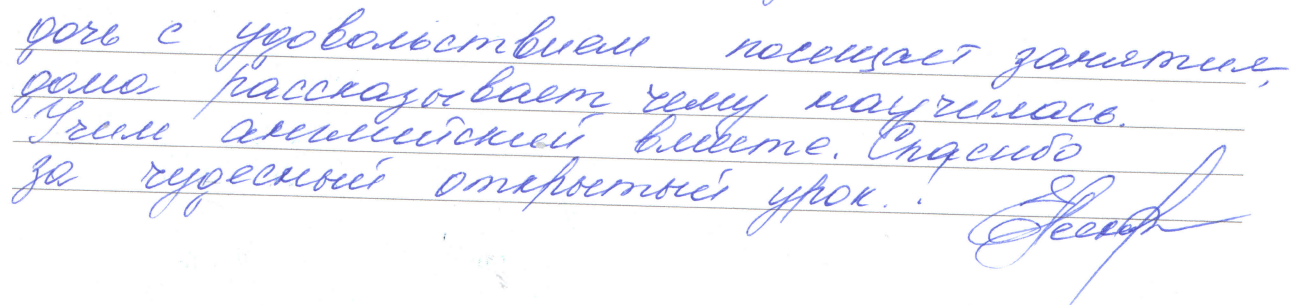 дочь с удовольствием посещает занятия,
дома рассказывает чему научилась.
Учим английский вместе. Спасибо
за чудесный открытый урок..